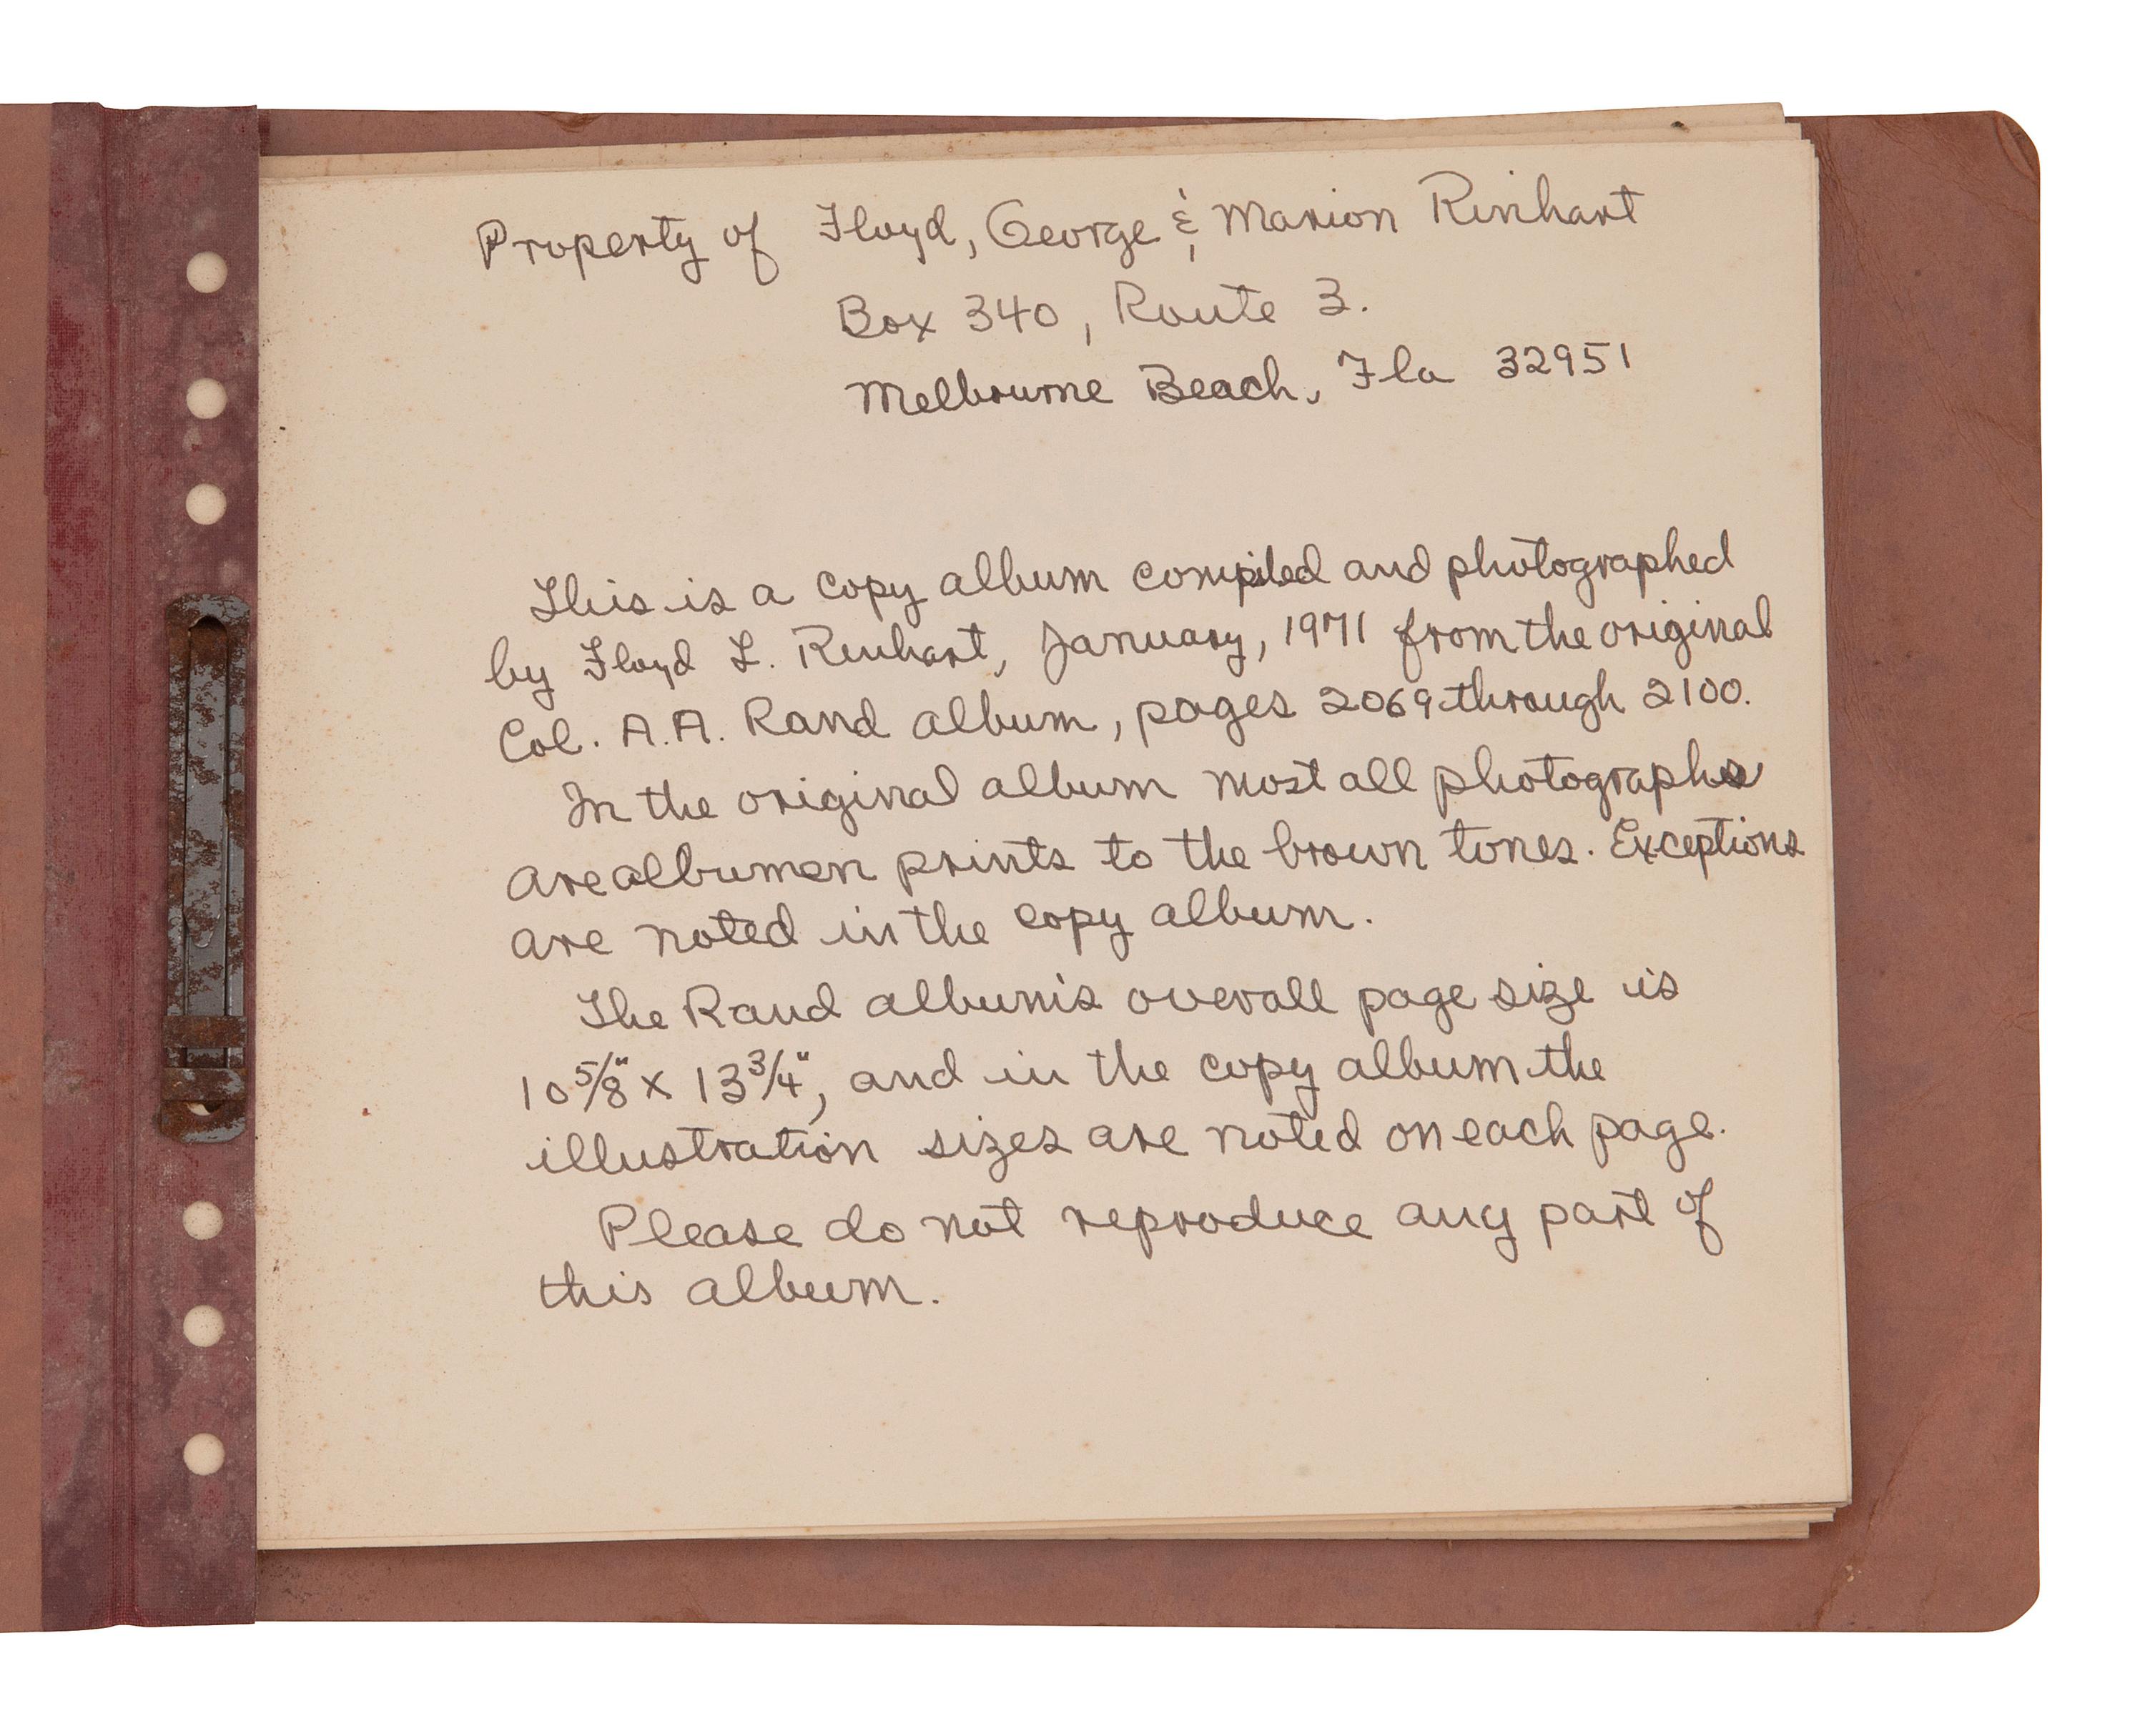 Property of Floyd, George & Marion Rinhart
Box 340, Route 3.
Melbourne Beach, Fla 32951
This is a copy album compiled and photographed
by Floyd L. Rinhart, January, 1971 from the original
Col. A.A. Rand album, pages 2069 through 2100.
In the original album most all photographs
are albumen prints to the brown tones. Exceptions
are noted in the copy album.
The Rand album's overall page size is
10 5/8" x 13 3/4", and in the copy album the
illustration sizes are noted on each page.
Please do not reproduce any part of
this album.